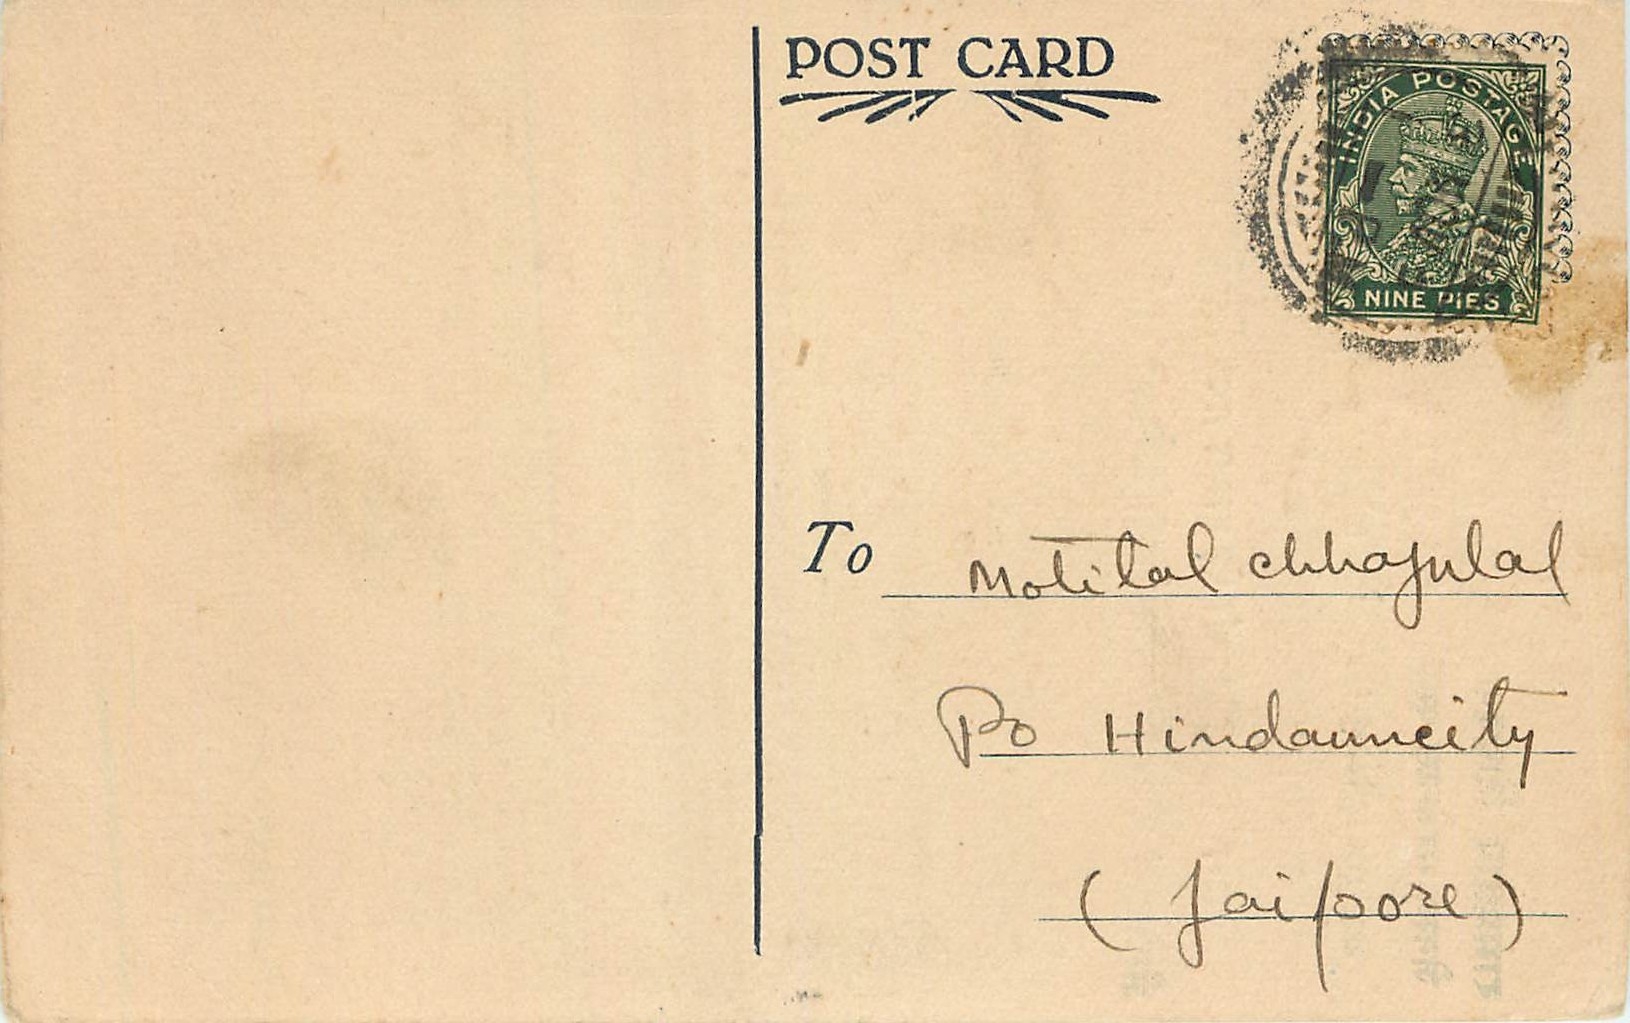 POST CARD
INDIA POSTAGE
NINE PIES
To Motilal Chhajulal
Po Hindauncity
( Jaipore )